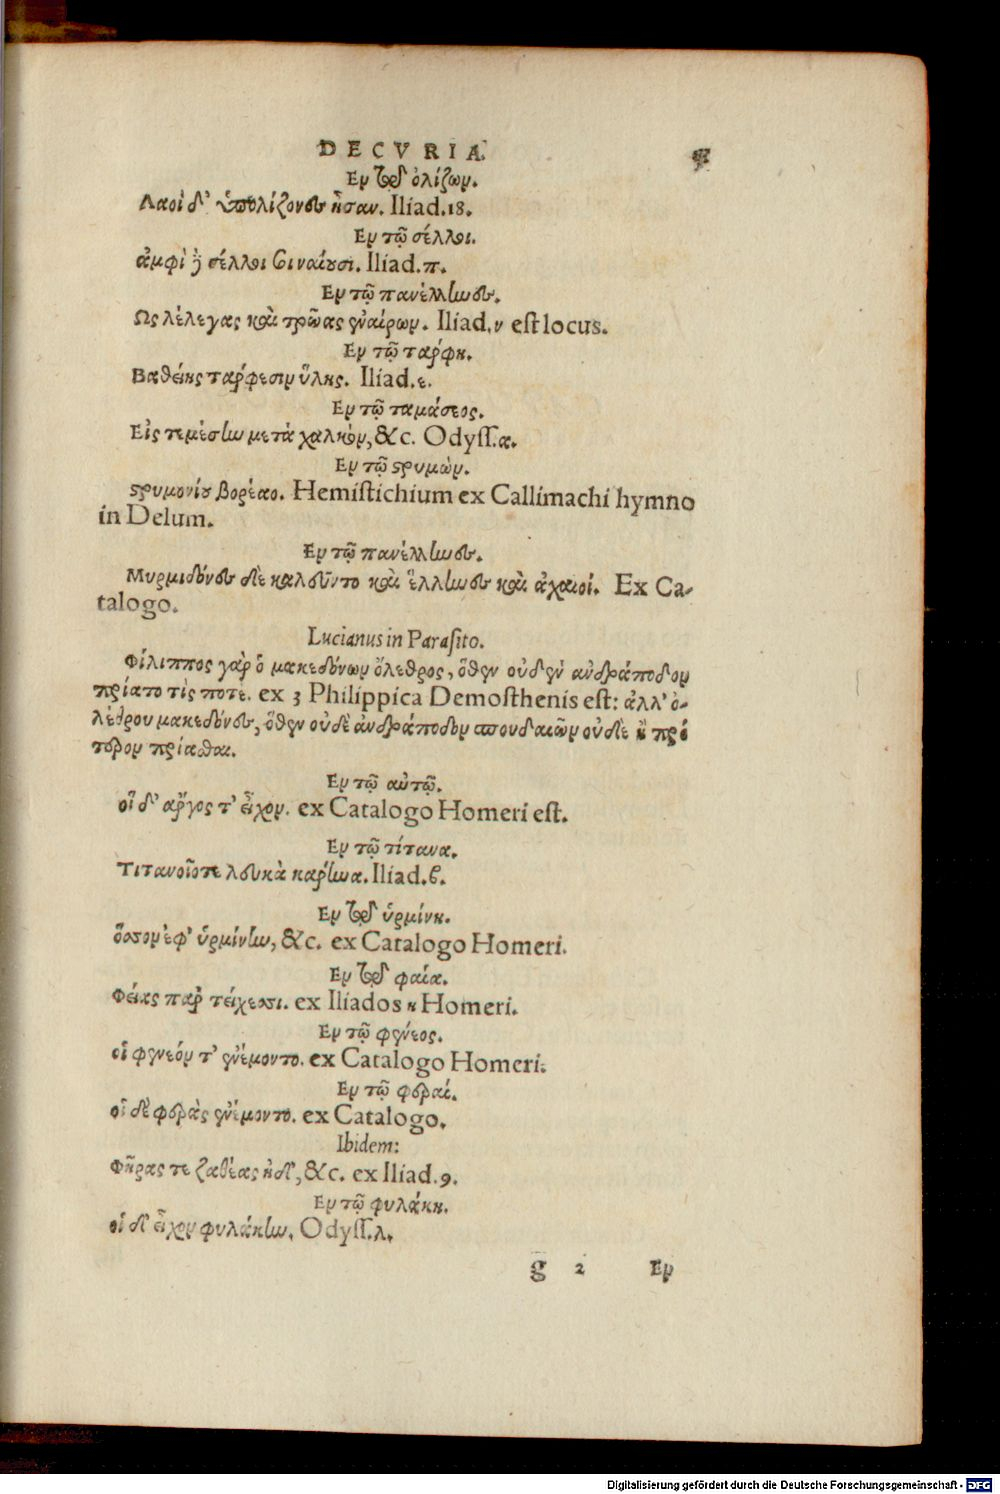 DECVRIA.
Ἐν τῷ ὀλίζων.
Λαοὶ δ' ὑπολίζονες ἦσαν. Iliad.18.
Ἐν τῷ σέλλοι.
ἀμφὶ ἢ σέλλοι σιναίουσι. Iliad.π.
Ἐν τῷ πανέλληνες.
Ως λέλεγας καὶ τρῶας ἐναίρων. Iliad.ν est locus.
Ἐν τῷ τάρφη.
Βαθείης τάρφεσιν ὕλης. Iliad.ε.
Ἐν τῷ ταμάσεος.
Εἰς τεμέσην μετὰ χαλκὸν, &c. Odyss.α.
Ἐν τῷ στρυμὼν.
στρυμονίου βορέαο. Hemistichium ex Callimachi hymno
in Delum.
Ἐν τῷ πανέλληνες.
Μυρμιδόνες δὲ καλεῦντο καὶ ἕλληνες καὶ ἀχαιοί. Ex Ca-
talogo.
Lucianus in Parasito.
Φίλιππος γὰρ ὁ μακεδόνων ὄλεθρος, ὅθεν οὐδὲν ἀνδράποδον
πρίατο τὶς ποτέ. ex 3 Philippica Demosthenis est: ἀλλ' ὀ-
λέθρου μακεδόνος, ὅθεν οὐδὲ ἀνδράποδον σπουδαῖον οὐδὲ ἦν πρό
τερον πρίασθαι.
Ἐν τῷ αὐτῷ.
οἳ δ' ἄργος τ' εἶχον. ex Catalogo Homeri est.
Ἐν τῷ τίτανα.
Τιτανοῖότε λευκὰ κάρηνα. Iliad.β.
Ἐν τῷ ὑρμίνη.
ὅσσον ἐφ' ὑρμίνην, &c. ex Catalogo Homeri.
Ἐν τῷ φαία.
Φέιας παρ τείχεσσι. ex Iliados η Homeri.
Ἐν τῷ φενέος.
οἱ φενεόν τ' ἐνέμοντο. ex Catalogo Homeri.
Ἐν τῷ φεραί.
οἳ δὲ φερὰς ἐνέμοντο. ex Catalogo.
Ibidem:
Φηράς τε ζαθέας ἠδ', &c. ex Iliad.9.
Ἐν τῷ φυλάκη.
οἱ δ' εἶχον φυλάκην. Odyss.λ.
g 2 Ἐν
Digitalisierung gefördert durch die Deutsche Forschungsgemeinschaft - DFG